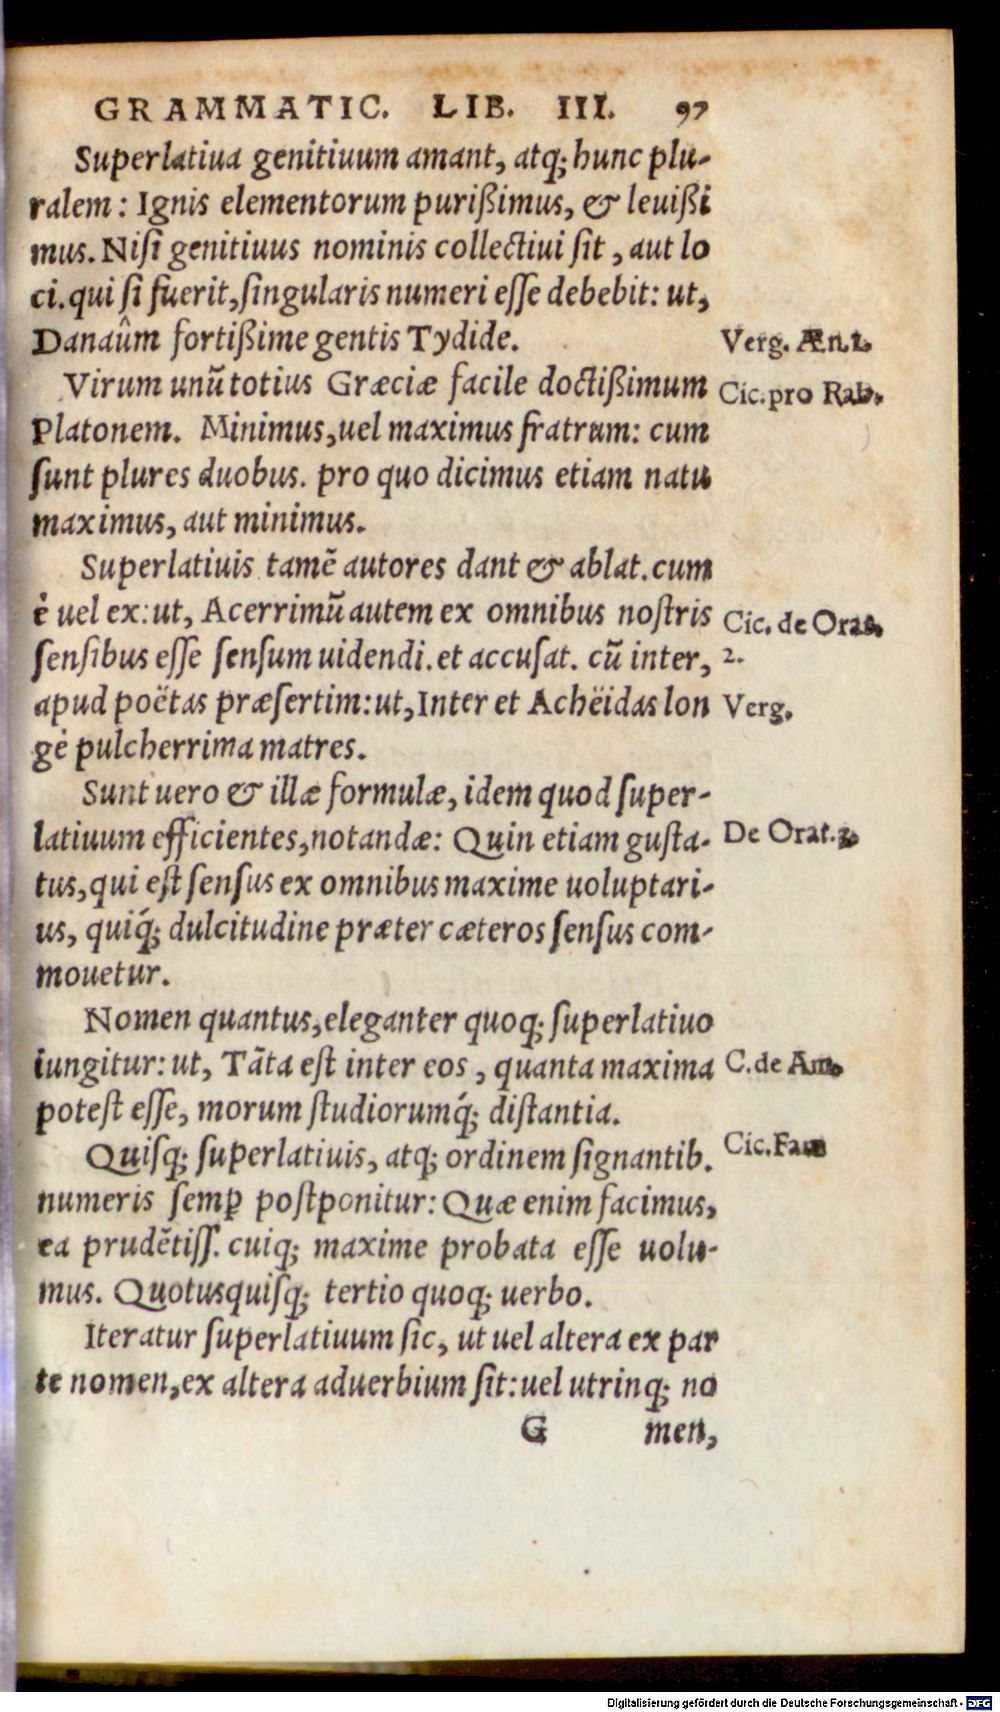 GRAMMATIC. LIB. III. 97
Superlatiua genitiuum amant, atq́; hunc plu-
ralem : Ignis elementorum purißimus, & leuißi
mus. Nisi genitiuus nominis collectiui sit , aut lo
ci. qui si fuerit, singularis numeri esse debebit: ut,
Danaûm fortißime gentis Tydide. Verg. Æn.1.
Virum unũ totius Græciæ facile doctißimum Cic.pro Rab.
Platonem. Minimus, uel maximus fratrum: cum
sunt plures duobus. pro quo dicimus etiam natu
maximus, aut minimus.
Superlatiuis tamẽ autores dant & ablat. cum
è uel ex: ut, Acerrimũ autem ex omnibus nostris Cic. de Orat.
sensibus esse sensum uidendi. et accusat. cũ inter, 2.
apud poëtas præsertim: ut, Inter et Achëidas lon Verg.
gè pulcherrima matres.
Sunt uero & illæ formulæ, idem quod super-
latiuum efficientes, notandæ: Quin etiam gusta- De Orat.3.
tus, qui est sensus ex omnibus maxime uoluptari-
us, quiq́; dulcitudine præter cæteros sensus com-
mouetur.
Nomen quantus, eleganter quoq; superlatiuo
iungitur: ut, Tãta est inter eos , quanta maxima C.de Am.
potest esse, morum studiorumq́; distantia.
Quisq; superlatiuis, atq; ordinem signantib. Cic.Fam
numeris semp̱ postponitur: Quæ enim facimus,
ea prudẽtiss. cuiq; maxime probata esse uolu-
mus. Quotusquisq; tertio quoq; uerbo.
Iteratur superlatiuum sic, ut uel altera ex par
te nomen, ex altera aduerbium sit: uel utrinq; no
G men,
Digitalisierung gefördert durch die Deutsche Forschungsgemeinschaft - DFG